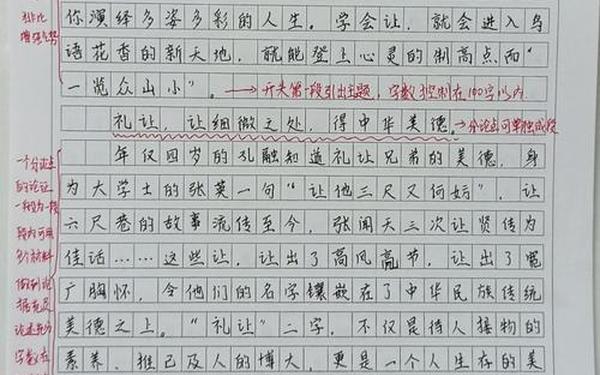 排比
增强气势
你演绎多姿多彩的人生。学会让，就会进入鸟
语花香的新天地，就能登上心灵的制高点而“
一览众山小”。→开头第一段引出主题，字数控制在100字以内
礼让，让细微之处，得中华美德。→分论点可单独成段
年仅四岁的孔融知道礼让兄弟的美德，身
为大学士的张英一句“让他三尺又何妨”，让
六尺巷的故事流传至今，张闻天三次让贤传为
佳话……这些让，让出了高风亮节，让出了宽
广胸怀，令他们的名字镶嵌在了中华民族传统
美德之上。“礼让”二字，不仅是待人接物的
素养、推己及人的博大，更是一个人生存的美
一个分论点
的论证
一般为一段
段内可用
多个材料
做到论
据充足
论述充分
字数在